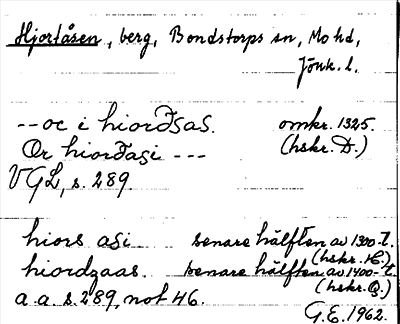 Hjortåsen, berg, Bondstorps sn, Mo hd,
Jönk. l.
--oc i hiorðsas. omkr. 1325.
Or hiorðasi --- (hskr. D.)
VGL, s. 289.
hiors asi senare hälften av 1300-t.
(hskr. K.)
hiordzaas. senare hälften av 1400-t.
a.a. s. 289, not 46. (hskr. Q.)
G.E. 1962.